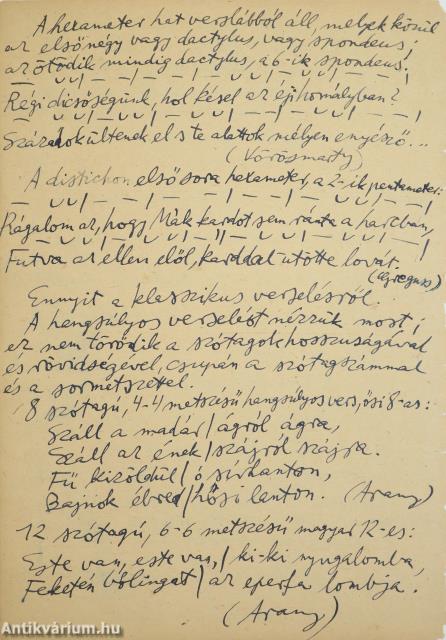 A hexameter hat verslábból áll, melyek közül
az első négy vagy dactylus, vagy spondeus;
az ötödik mindig dactylus, a 6-ik spondeus!
Régi dicsőségünk, hol késel az éji homályban?
Századok ültenek el s te alattok mélyen enyésző...
(Vörösmarty)
A distichon első sora hexameter, a 2-ik pentameter:
Rágalom az, hogy Mák kardot sem ránta a harcban,
Futva az ellen elől, karddal ütötte lovát.
(Greguss)
Ennyit a klasszikus verselésről.
A hangsúlyos verselést nézzük most;
ez nem törődik a szótagok hosszuságával
és rövidségével, csupán a szótagszámmal
és a sormetszettel.
8 szótagú, 4-4 metszésű hangsúlyos vers, ősi 8-as:
Száll a madár / ágról ágra,
Száll az ének / szájról szájra.
Fű kizöldül / ó sírhanton,
Bajnok ébred / hősi lanton. (Arany)
12 szótagú, 6-6 metszésű magyar 12-es:
Este van, este van, / ki-ki nyugalomba,
Feketén bólingat / az eperfa lombja.
(Arany)
Antikvárium.hu